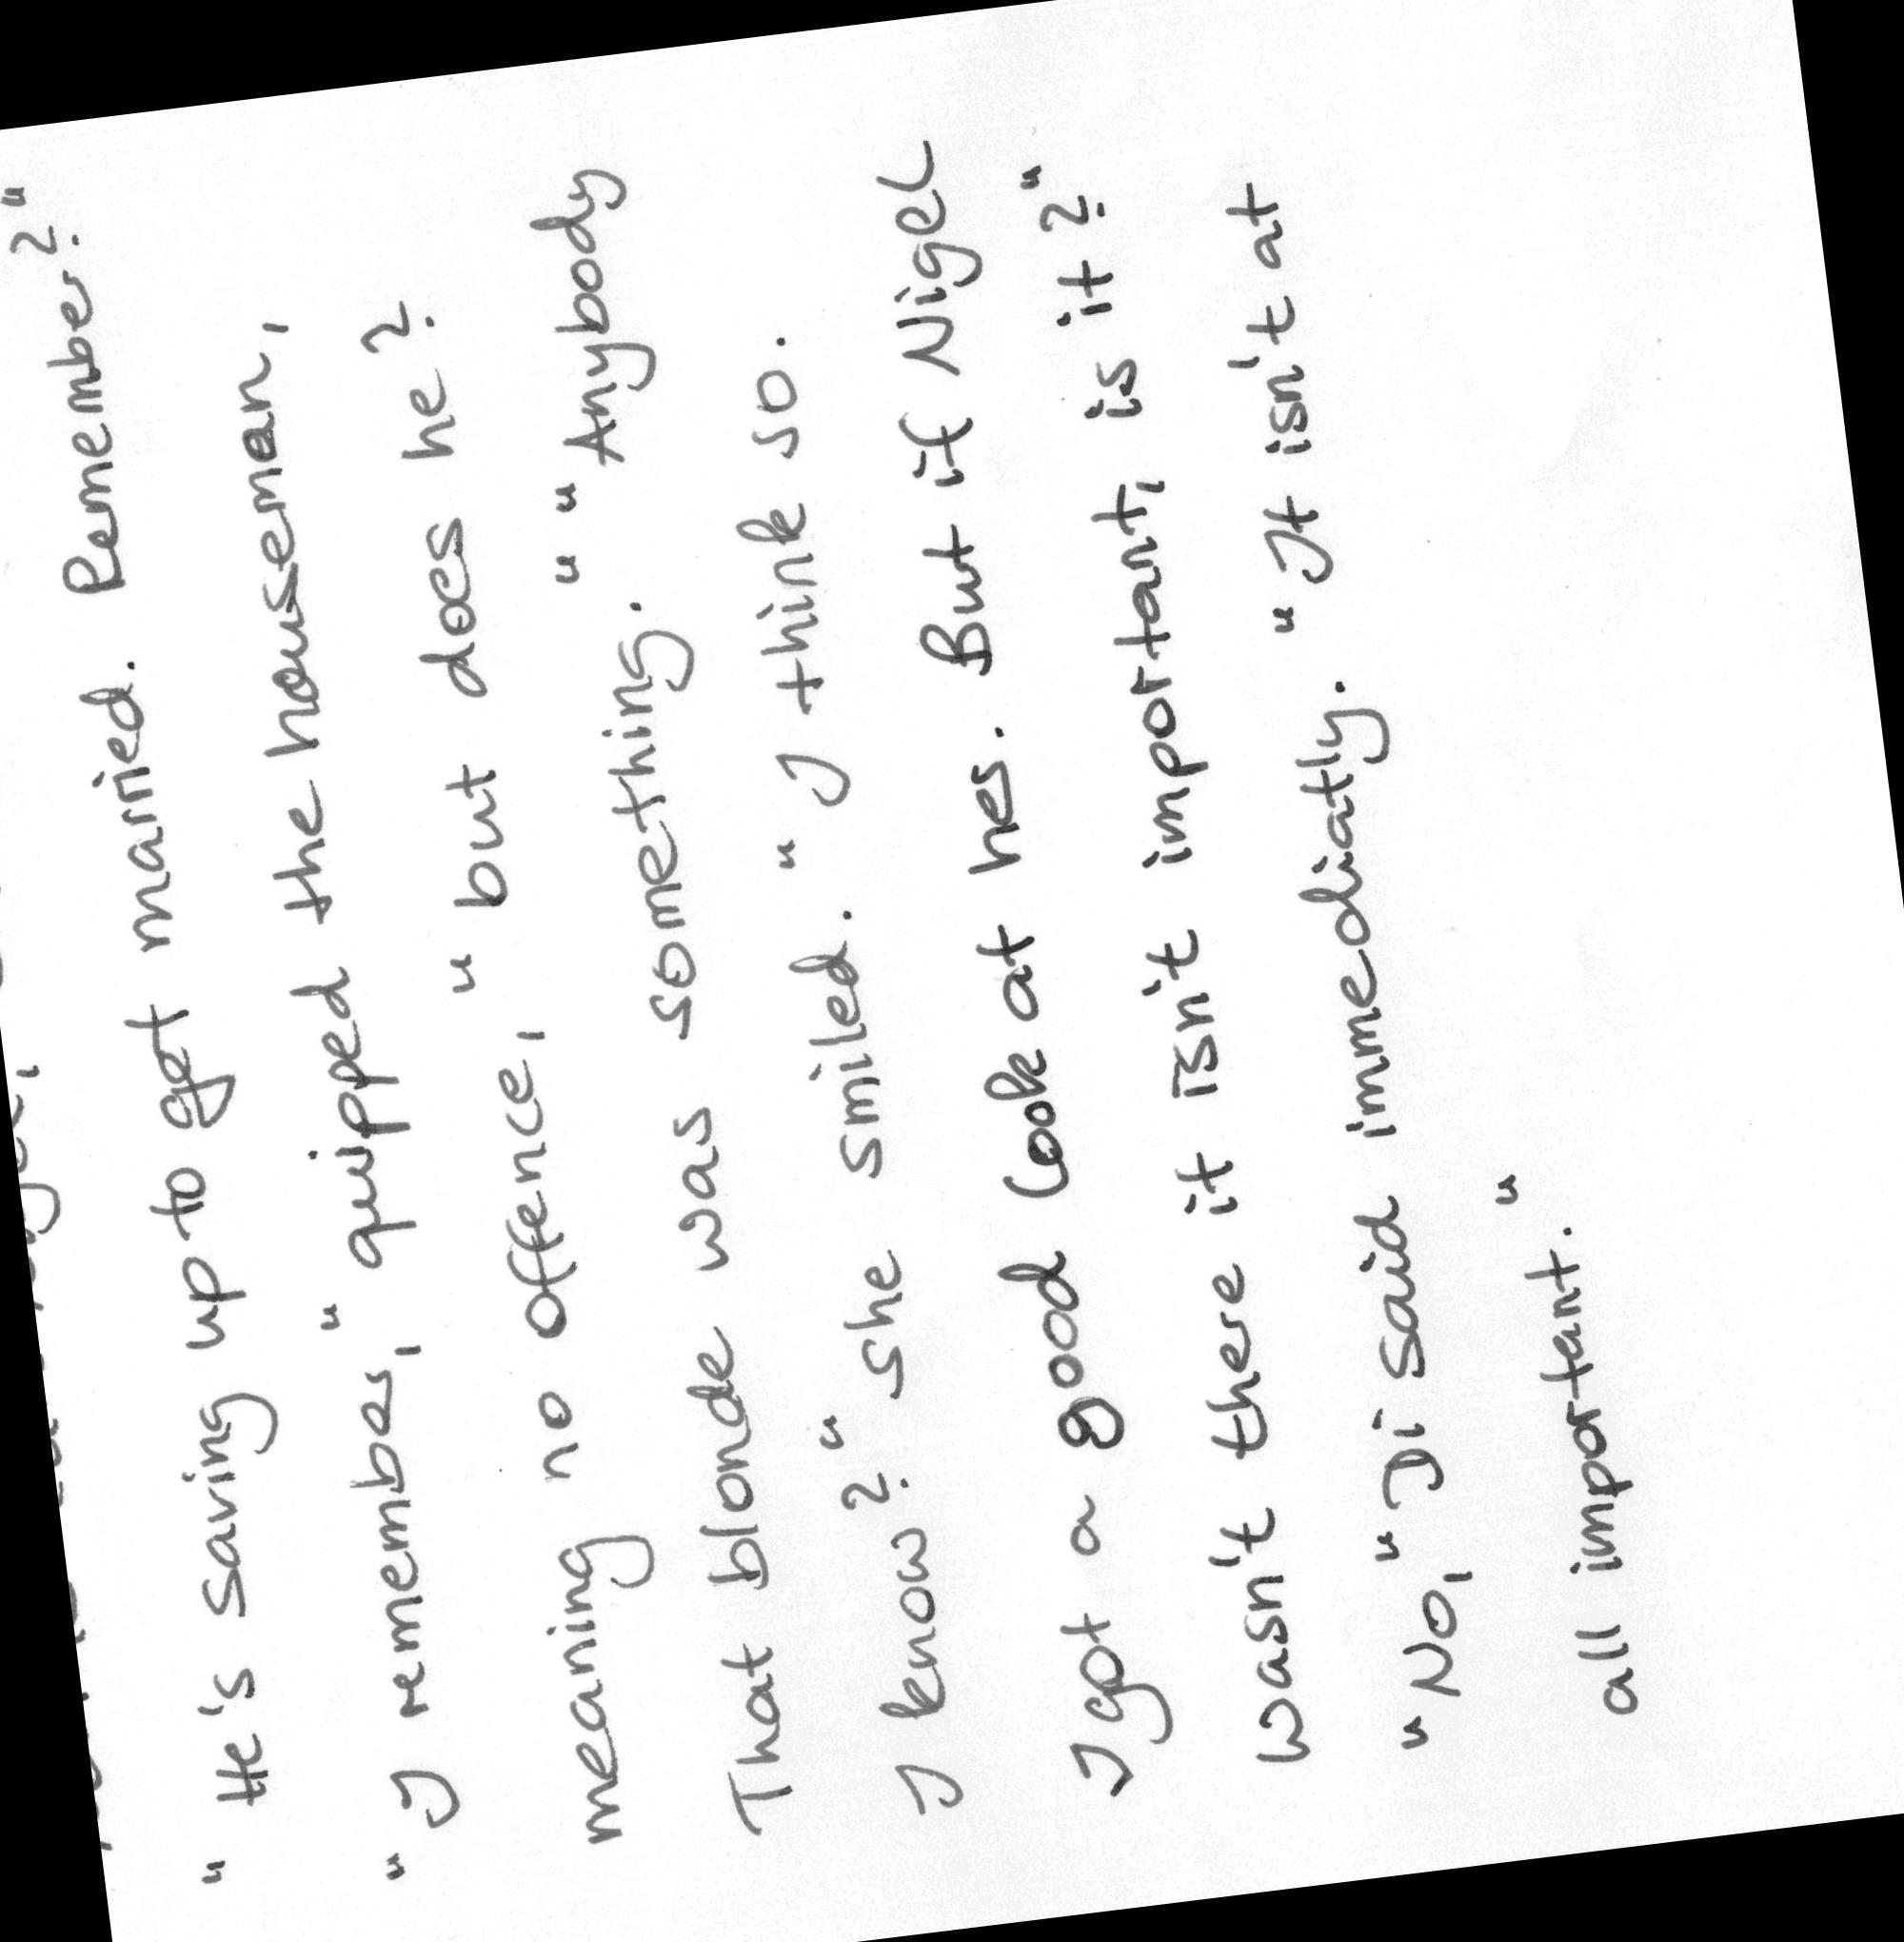 "He's saving up to get married. Remember?"
"I remember," quipped the houseman,
meaning no offence, "but does he?
That blonde was something." "Anybody
I know?" she smiled. "I think so.
I got a good look at her. But if Nigel
wasn't there it isn't important, is it?"
"No," Di said immediatly. "It isn't at
all important."